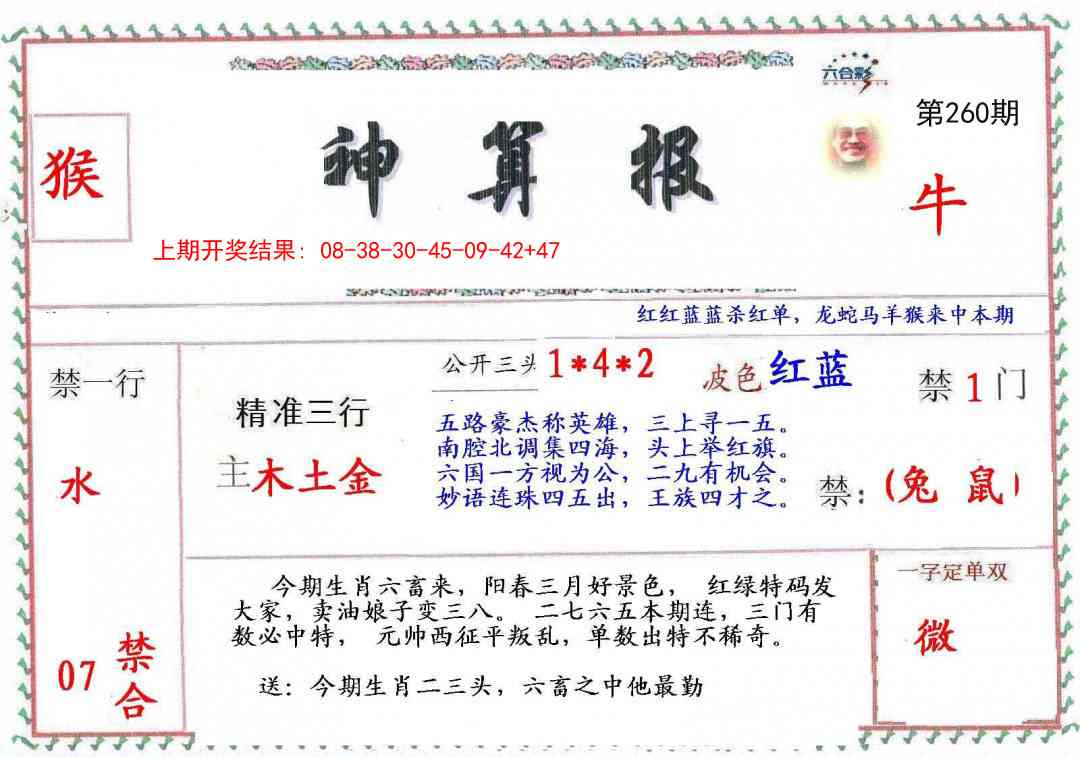 六合彩
第260期
猴
神算报
牛
上期开奖结果：08-38-30-45-09-42+47
红红蓝蓝杀红单，龙蛇马羊猴来中本期
禁一行
水
07
禁合
精准三行
主木土金
公开三头1*4*2
波色红蓝
五路豪杰称英雄，三上寻一五。
南腔北调集四海，头上举红旗。
六国一方视为公，二九有机会。
妙语连珠四五出，王族四才之。
禁1门
禁：(兔 鼠)
今期生肖六畜来，阳春三月好景色， 红绿特码发
大家，卖油娘子变三八。 二七六五本期连，三门有
数必中特， 元帅西征平叛乱，单数出特不稀奇。
送：今期生肖二三头，六畜之中他最勤
一字定单双
微